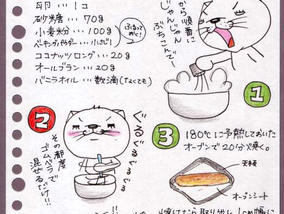 卵 ‥‥ 1コ
砂糖 ‥‥ 70g
小麦粉 ‥‥ 100g
ベーキングパウダー ‥‥ 小さじ1
ココナッツロング ‥‥ 20g
オールブラン ‥‥ 20g
バニラオイル ‥‥ 数滴
ふるっておく!
順番に
じゃんじゃん
ぶちこんで、
1
2
ぐるぐるぐるぐる
その都度
ゴムベラで
混ぜるだけ!!
3
180℃に予熱しておいた
オーブンで20分焼く。
天板
オーブンシート